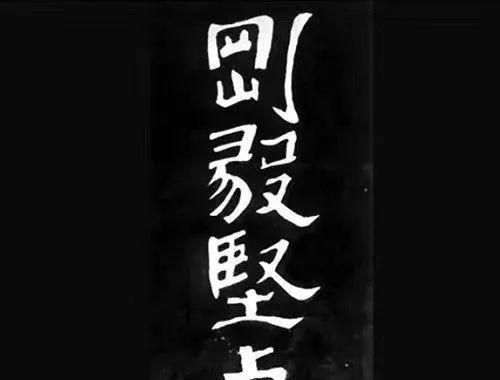 剛毅堅